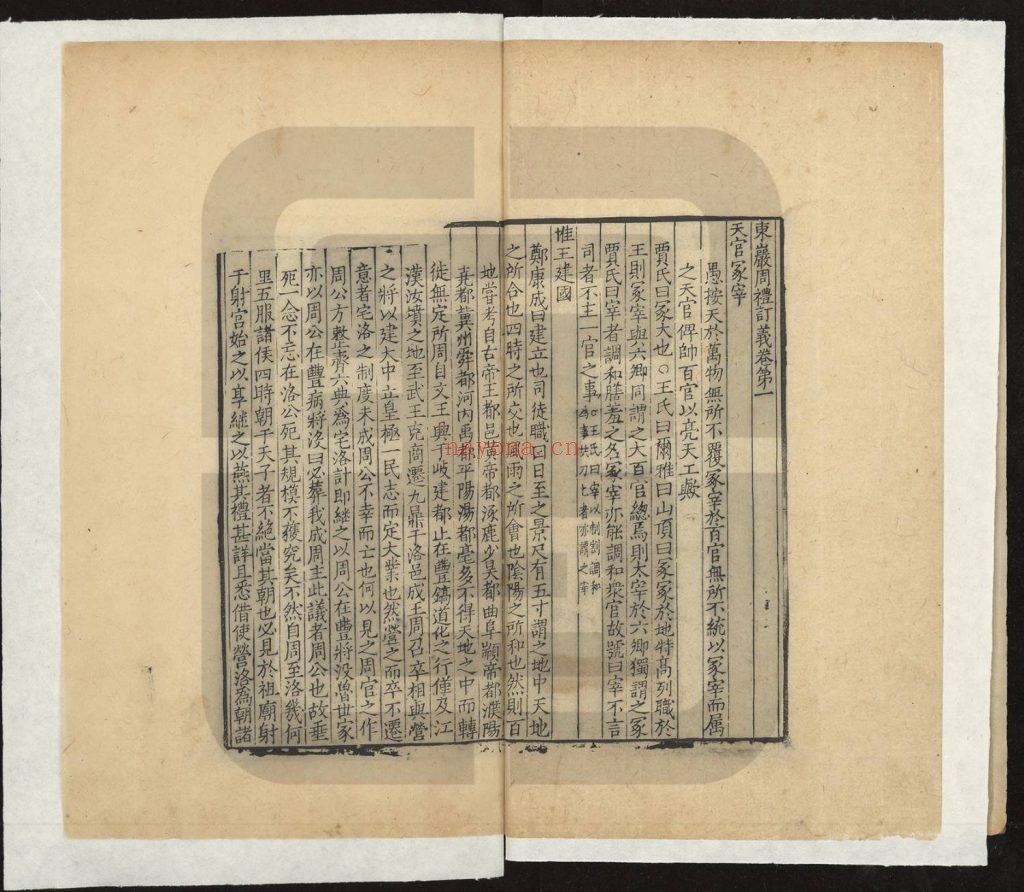 東巖周禮訂義卷第一
天官冢宰
愚按天於萬物無所不覆冢宰於百官無所不統以冢宰而属
之天官俾帥百官以亮天工歟
賈氏曰冢大也○王氏曰爾雅曰山頂曰冢冢於地特髙列職於
王則冢宰與六卿同謂之大百官總焉則太宰於六卿獨謂之冢
賈氏曰宰者調和膳羞之名冢宰亦能調和衆官故號曰宰不言
司者不主一官之事○王氏曰宰以制割調和
為事共刀匕者亦謂之宰
惟王建國
鄭康成曰建立也司徒職曰日至之景尺有五寸謂之地中天地
之所合也四時之所交也風雨之所會也陰陽之所和也然則百
地嘗考自古帝王都邑黄帝都涿鹿少昊都曲阜顓帝都濮陽
堯都冀州舜都河内禹都平陽湯都亳多不得天地之中而轉
徒無定所周自文王興于岐建都止在豐鎬道化之行僅及江
漢汝墳之地至武王克商遷九鼎于洛邑成王周召卒相與營
之將以建大中立皇極一民志而定大業也然營之而卒不遷
意者宅洛之制度未成周公不幸而亡也何以見之周官之作
周公方整齊六典為宅洛計即継之以周公在豐將没曽世家
亦以周公在豐病將没曰必葬我成周主此議者周公也故垂
死一念不忘在洛公死其規模不獲究矣不然自周至洛幾何
里五服諸侯四時朝于天子者不絶當其朝也必見於祖廟射
于射宫始之以享継之以燕其禮甚詳且悉借使營洛為朝諸
nayona.cn